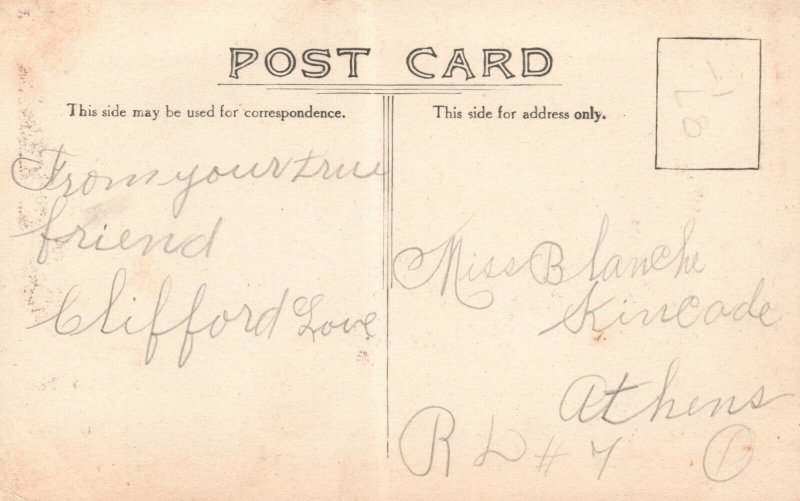 POST CARD
This side may be used for correspondence.
This side for address only.
From your true
friend
Clifford Love
Miss Blanche
Kincade
Athens
R D # 7